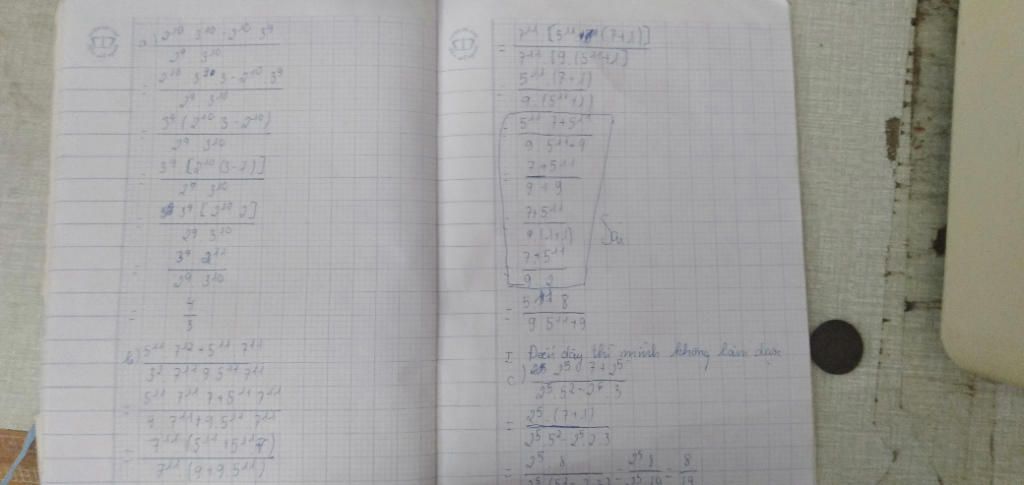 a) 2^10 . 3^10 - 2^10 . 3^9
2^9 . 3^10
= 2^10 . 3^9 . 3 - 2^10 . 3^9
2^9 . 3^10
= 3^9 (2^10 . 3 - 2^10)
2^9 . 3^10
= 3^9 [2^10 (3-1)]
2^9 . 3^10
= 3^9 [2^10 . 2]
2^9 3^10
= 3^9 2^11
2^9 3^10
= 4
3
b) 5^11 . 7^12 + 5^11 . 7^11
3^2 . 7^11 + 9 . 5^11 . 7^11
= 5^11 . 7^11 . 7 + 5^11 . 7^11
9 . 7^11 + 9 . 5^11 . 7^11
= 7^11 . (5^11 + 5^11 7)
7^11 . (9 + 9 . 5^11)
= 7^11 [5^11 (7+1)]
7^11 . [9 . (5^11+1)]
= 5^11 . (7+1)
9 . (5^11+1)
= 5^11 . 7 + 5^11
9 . 5^11 + 9
= 7 + 5^11
9 + 9
= 7 + 5^11
9 (1+1)
Sai
= 7 + 5^11
9 . 2
= 5^11 . 8
9 . 5^11 + 9
I Đến đây thì mình không làm được
c) 2^5 . 7 + 2^5
2^5 . 5^2 - 2^5 . 3
= 2^5 . (7+1)
2^5 . 5^2 - 2^5 . 2 . 3
= 2^5 . 8 = 2^5 8 = 8
19